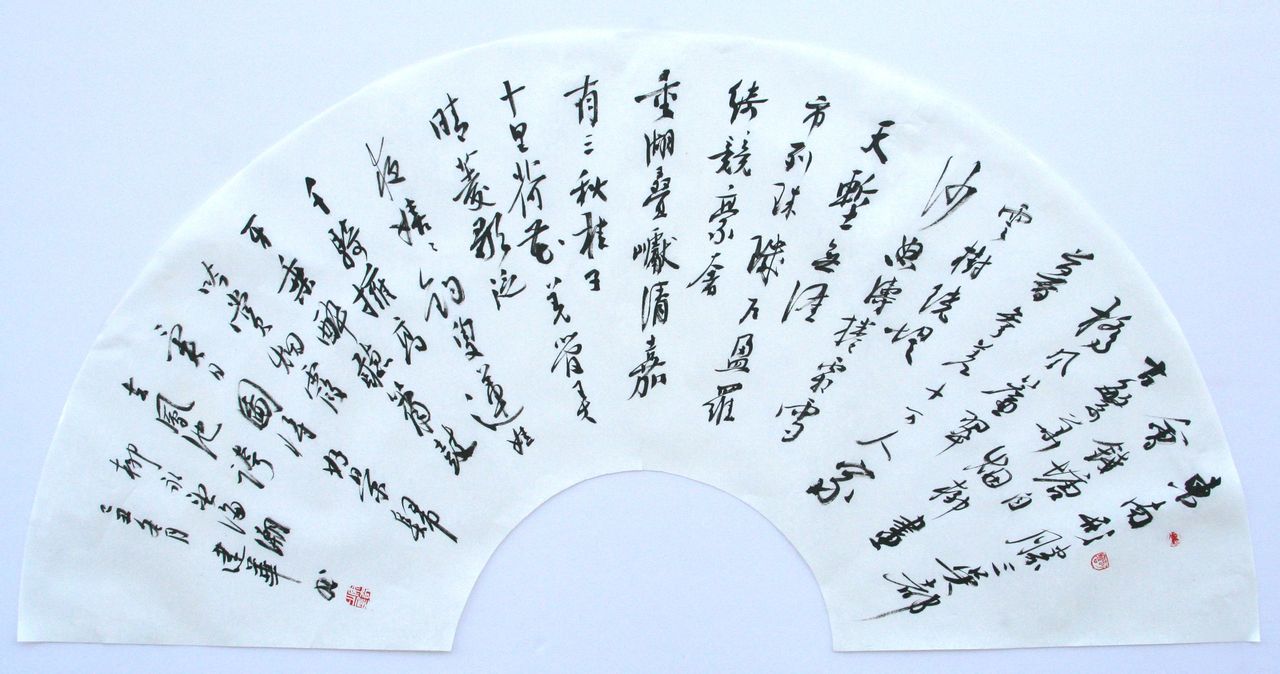 東南形勝三吳都
會錢塘自
古繁華煙柳畫
橋風簾翠
幕參差十萬人家
雲樹繞堤
沙怒濤捲霜雪
天塹無涯
市列珠璣戶盈羅
綺競豪奢
重湖疊巘清嘉
有三秋桂子
十里荷花羌管弄
晴菱歌泛
夜嬉嬉釣叟蓮娃
千騎擁高
牙乘醉聽簫鼓
吟賞煙霞
異日圖將好景歸
去鳳池誇
柳永望海潮
丑年月建華書